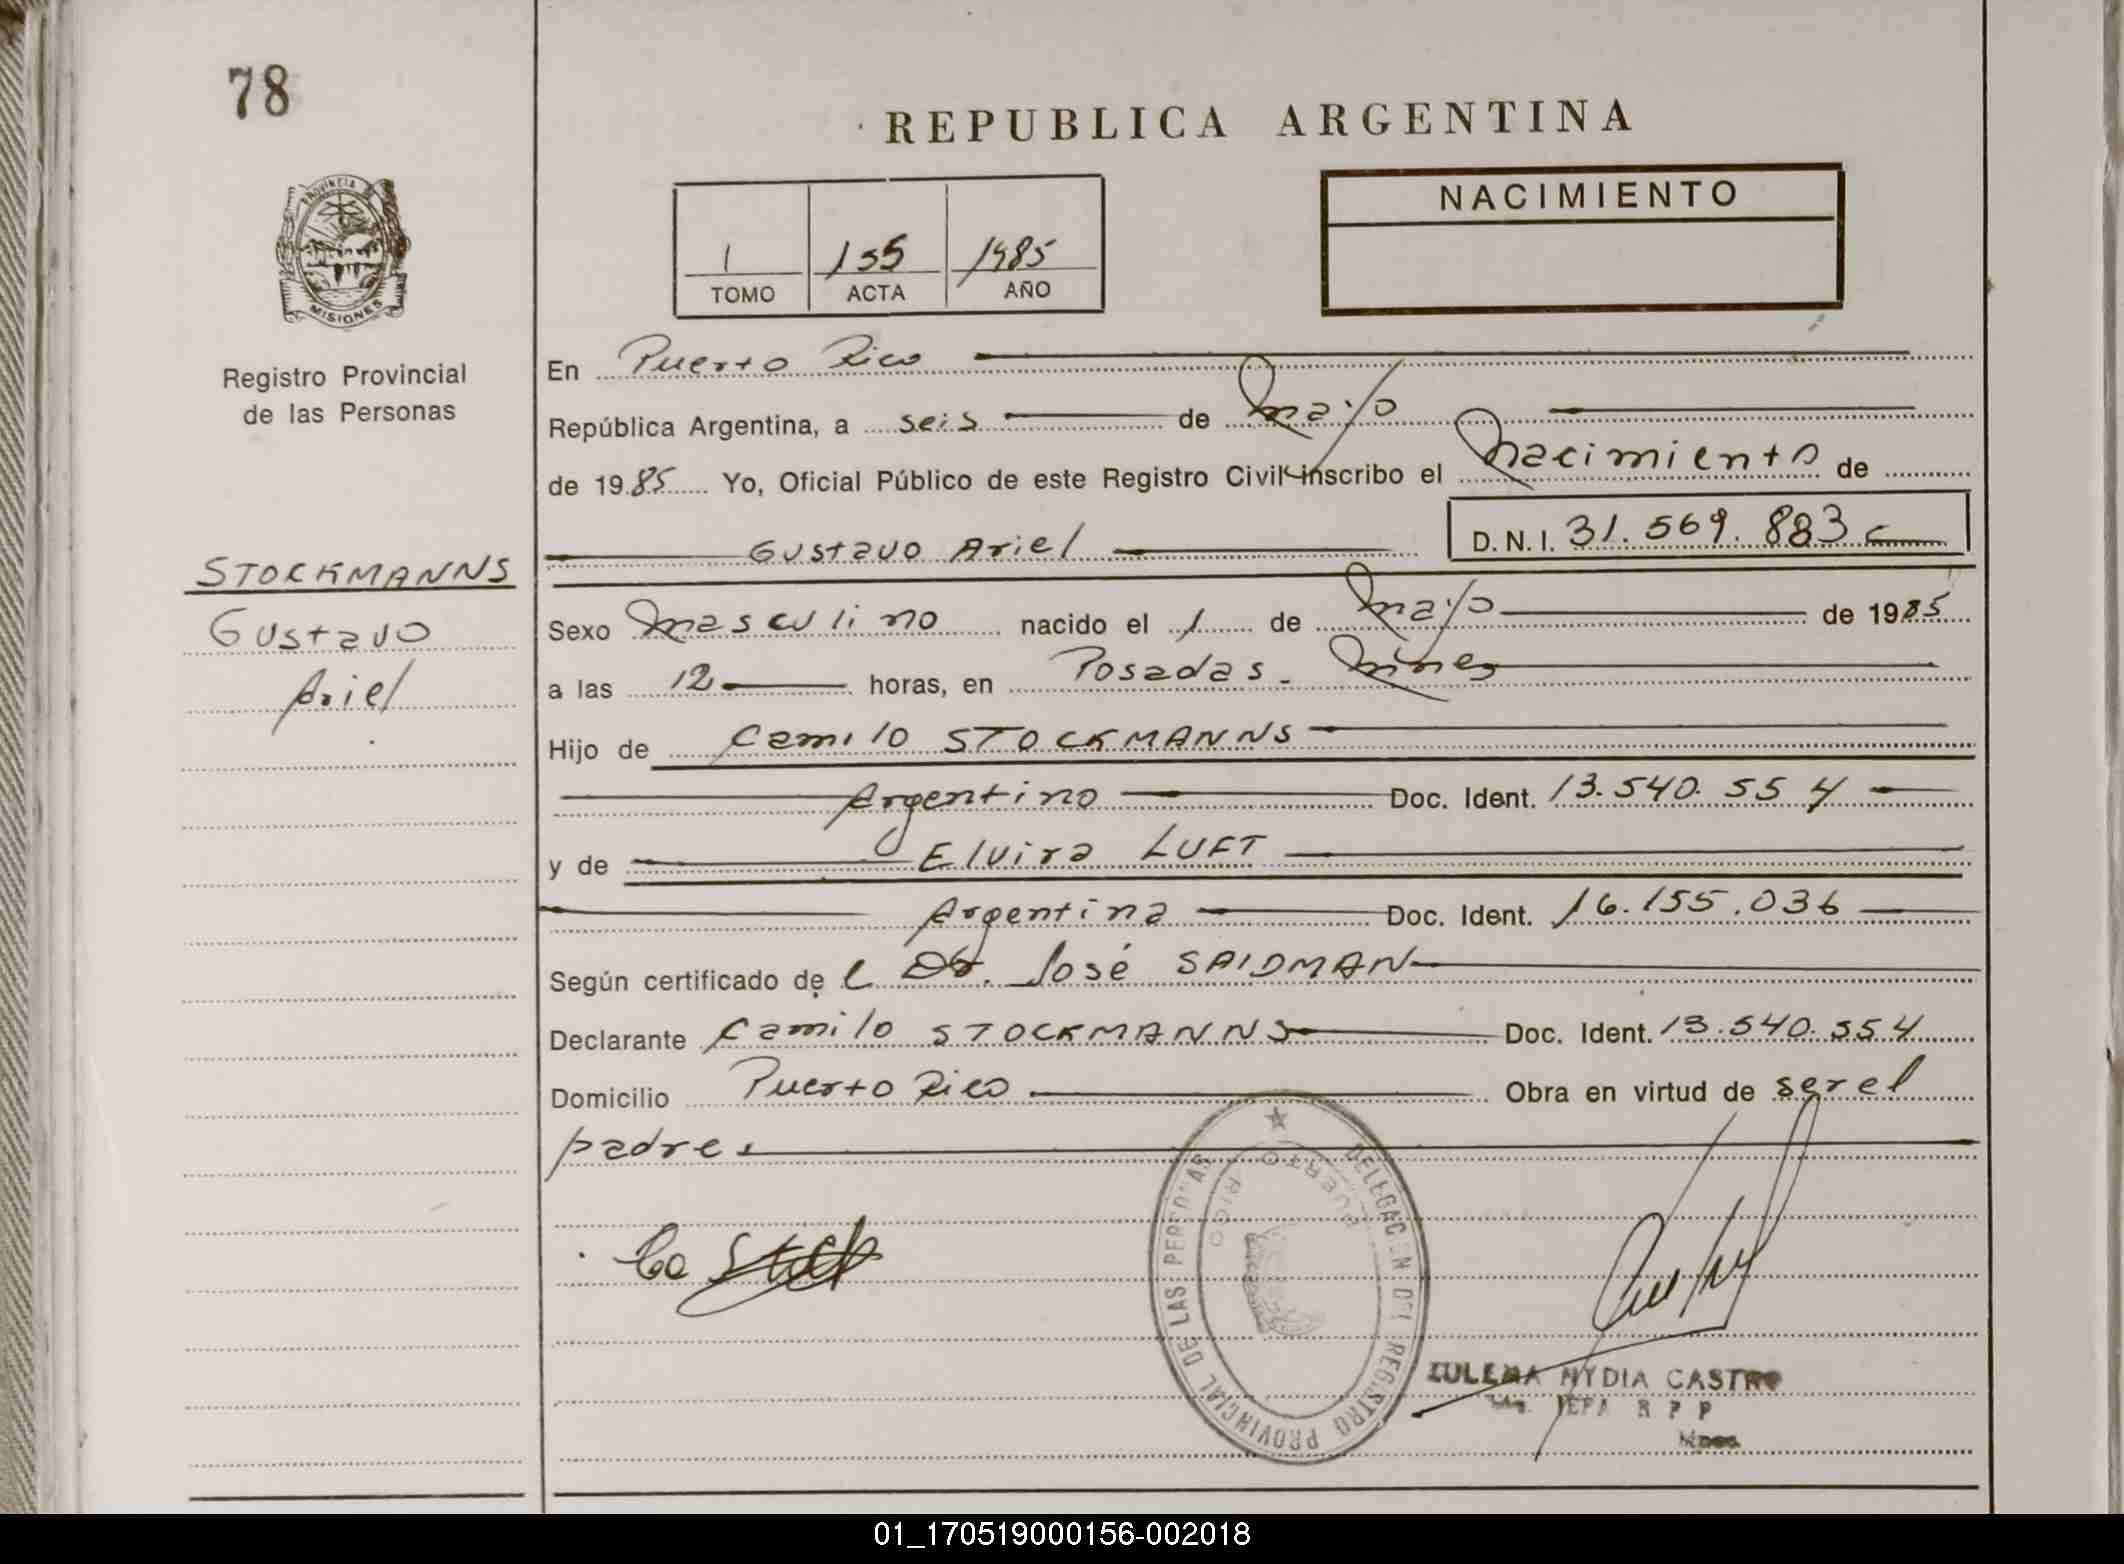 78
REPUBLICA ARGENTINA
NACIMIENTO
1 155 1985
TOMO ACTA AÑO
PROVINCIA DE
MISIONES
Registro Provincial
de las Personas
En Puerto Rico
República Argentina, a seis de mayo
de 1985 Yo, Oficial Público de este Registro Civil inscribo el Nacimiento de
Gustavo Ariel D.N.I. 31.569.883
STOCKMANNS
Gustavo
Ariel
Sexo masculino nacido el 1 de mayo de 1985
a las 12 horas, en Posadas - Mnes
Hijo de Camilo STOCKMANNS
Argentino Doc. Ident. 13.540.554
y de Elvira LUFT
Argentina Doc. Ident. 16.155.036
Según certificado de l Dr. José SAIDMAN
Declarante Camilo STOCKMANNS Doc. Ident. 13.540.554
Domicilio Puerto Rico Obra en virtud de ser el
padre
DELEGACION DEL REGISTRO PROVINCIAL DE LAS PERSONAS
PUERTO RICO
ZULEMA NYDIA CASTRO
JEFA R P P
Mnes
01_170519000156-002018